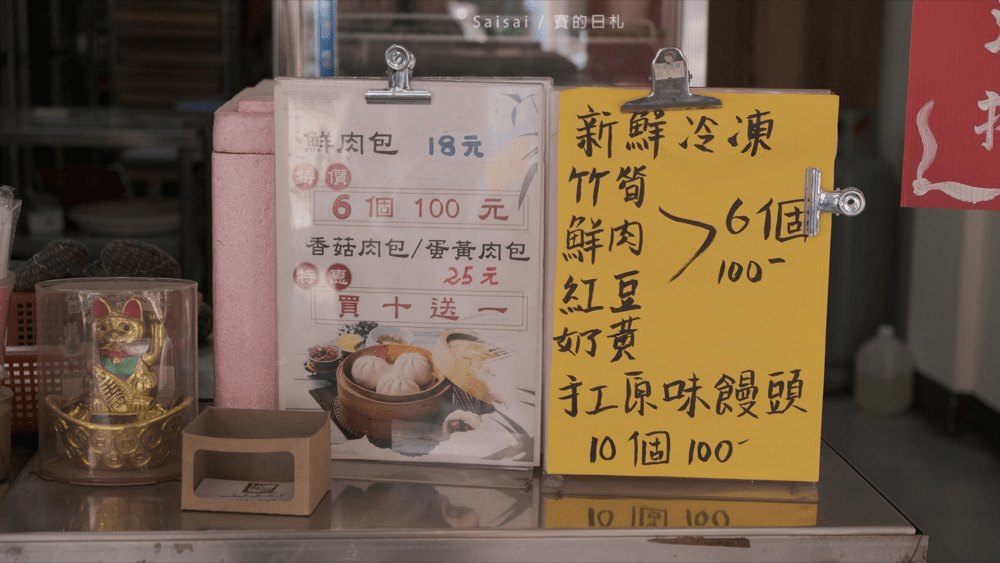 Saisai / 賽的日札
鮮肉包 18元
特價
6個 100 元
香菇肉包/蛋黃肉包
特惠 25元
買十送一
新鮮冷凍
竹筍
鮮肉
紅豆
奶黃
6個
100-
手工原味饅頭
10個 100-